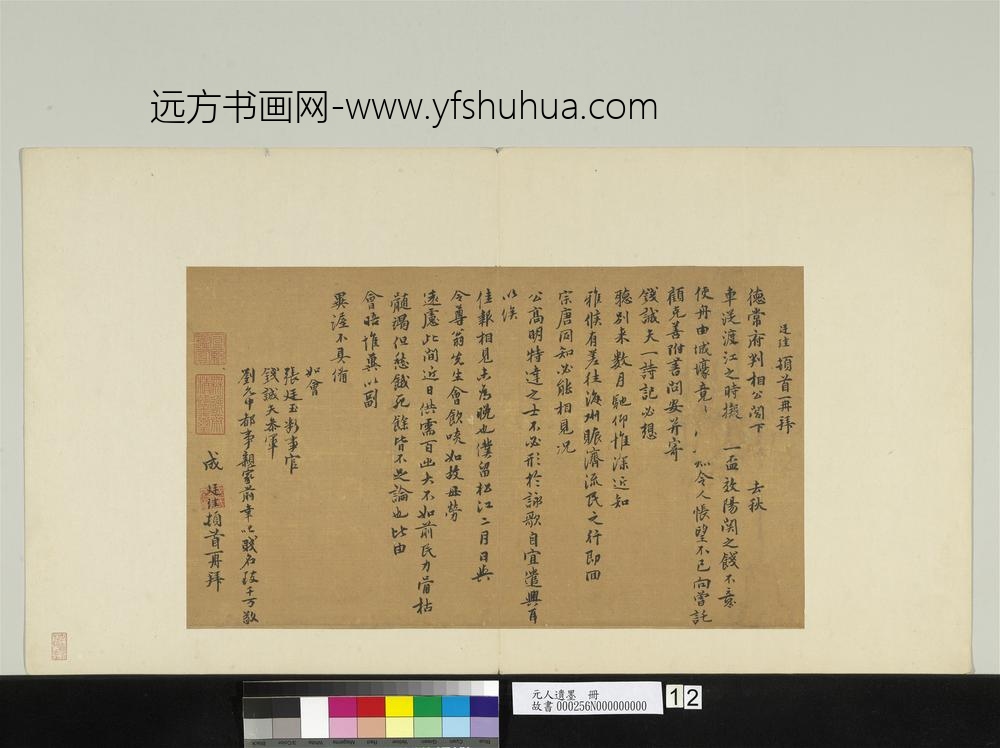 远方书画网-www.yfshuhua.com
廷珪頓首再拜
德常府判相公閣下 去秋
車從渡江之時擬 一盃效陽関之餞不意
使舟由城壕竟 令人悵望不已向嘗託
顧克善附書問安并寄
錢誠夫一詩記必想
聽別来數月馳仰惟深近知
雅候有差往海州賑濟流民之行即回
宗唐同知必能相見况
公高明特達之士不必形於詠歌自宜遣興耳
以俟
佳報相見未為晚也僕留松江二月日與
令尊翁先生會飲啖如故毋勞
遠慮此間近日供需百出大不如前民力膏枯
髓竭但愁餓死餘皆不足論也比由
會晤惟冀以副
不具備
如會
張廷玉
錢誠夫叅軍
都事親家前幸以賤名致千万敬
成 廷珪頓首再拜
元人遺墨 冊
故書 000256N000000000
12
Black
3/Color
White
Magenta
Red
Yellow
Green
Cyan
Blue